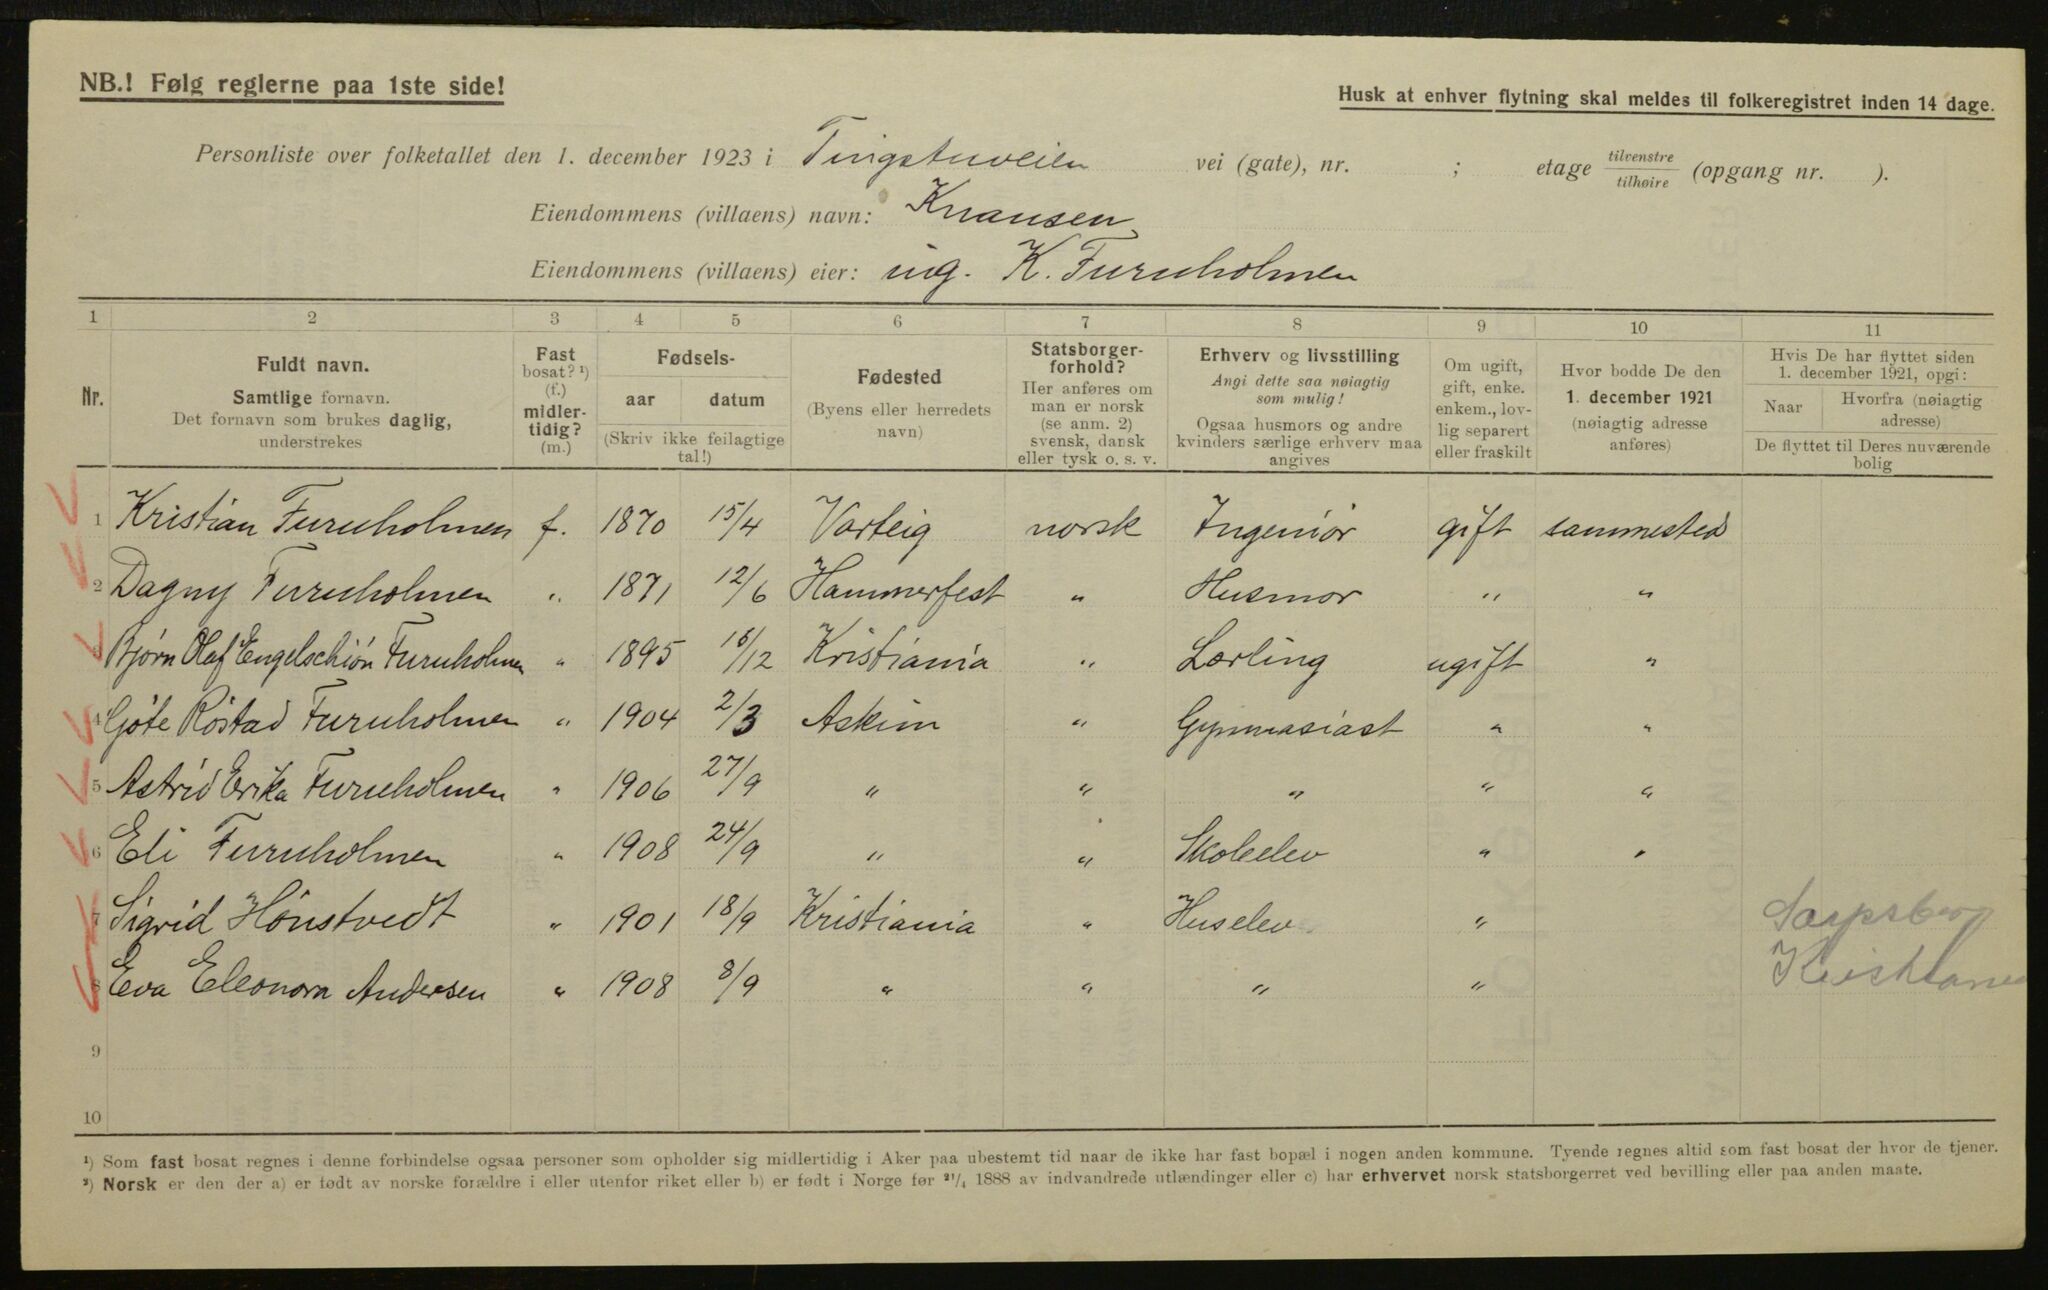 NB.! Følg reglerne paa 1ste side!
Husk at enhver flytning skal meldes til folkeregistret inden 14 dage.
Personliste over folketallet den 1. december 1923 i Tingstuveien vei (gate), nr. ; etage tilvenstre/tilhøire (opgang nr. ).
Eiendommens (villaens) navn: Knausen
Eiendommens (villaens) eier: ing. K. Furuholmen
1 2 3 4 5 6 7 8 9 10 11
Nr.
Fuldt navn.
Samtlige fornavn.
Det fornavn som brukes daglig, understrekes
Fast bosat? ¹) (f.) midlertidig? (m.)
Fødsels-
aar datum
(Skriv ikke feilagtige tal!)
Fødested
(Byens eller herredets navn)
Statsborgerforhold?
Her anføres om man er norsk (se anm. 2) svensk, dansk eller tysk o. s. v.
Erhverv og livsstilling
Angi dette saa nøiagtig som mulig!
Ogsaa husmors og andre kvinders særlige erhverv maa angives
Om ugift, gift, enke. enkem., lovlig separert eller fraskilt
Hvor bodde De den 1. december 1921 (nøiagtig adresse anføres)
Hvis De har flyttet siden 1. december 1921, opgi:
Naar Hvorfra (nøiagtig adresse)
De flyttet til Deres nuværende bolig
1 Kristian Furuholmen f. 1870 15/4 Varteig norsk Ingeniør gift sammested
2 Dagny Furuholmen " 1871 12/6 Hammerfest " Husmor " "
3 Bjørn Olaf Engelschiøn Furuholmen " 1895 15/12 Kristiania " Lærling ugift "
4 Gøte Røstad Furuholmen " 1904 2/3 Askim " Gymnasiast " "
5 Astrid Erika Furuholmen " 1906 27/9 " " " " "
6 Eli Furuholmen " 1908 24/9 " " Skoleelev " "
7 Sigrid Hønstvedt " 1901 18/9 Kristiania " Huselev " Sarpsborg
8 Eva Eleonora Andersen " 1908 8/9 " " " " Kristiania
9
10
¹) Som fast bosat regnes i denne forbindelse ogsaa personer som opholder sig midlertidig i Aker paa ubestemt tid naar de ikke har fast bopæl i nogen anden kommune. Tyende regnes altid som fast bosat der hvor de tjener.
²) Norsk er den der a) er født av norske forældre i eller utenfor riket eller b) er født i Norge før 21/4 1888 av indvandrede utlændinger eller c) har erhvervet norsk statsborgerret ved bevilling eller paa anden maate.